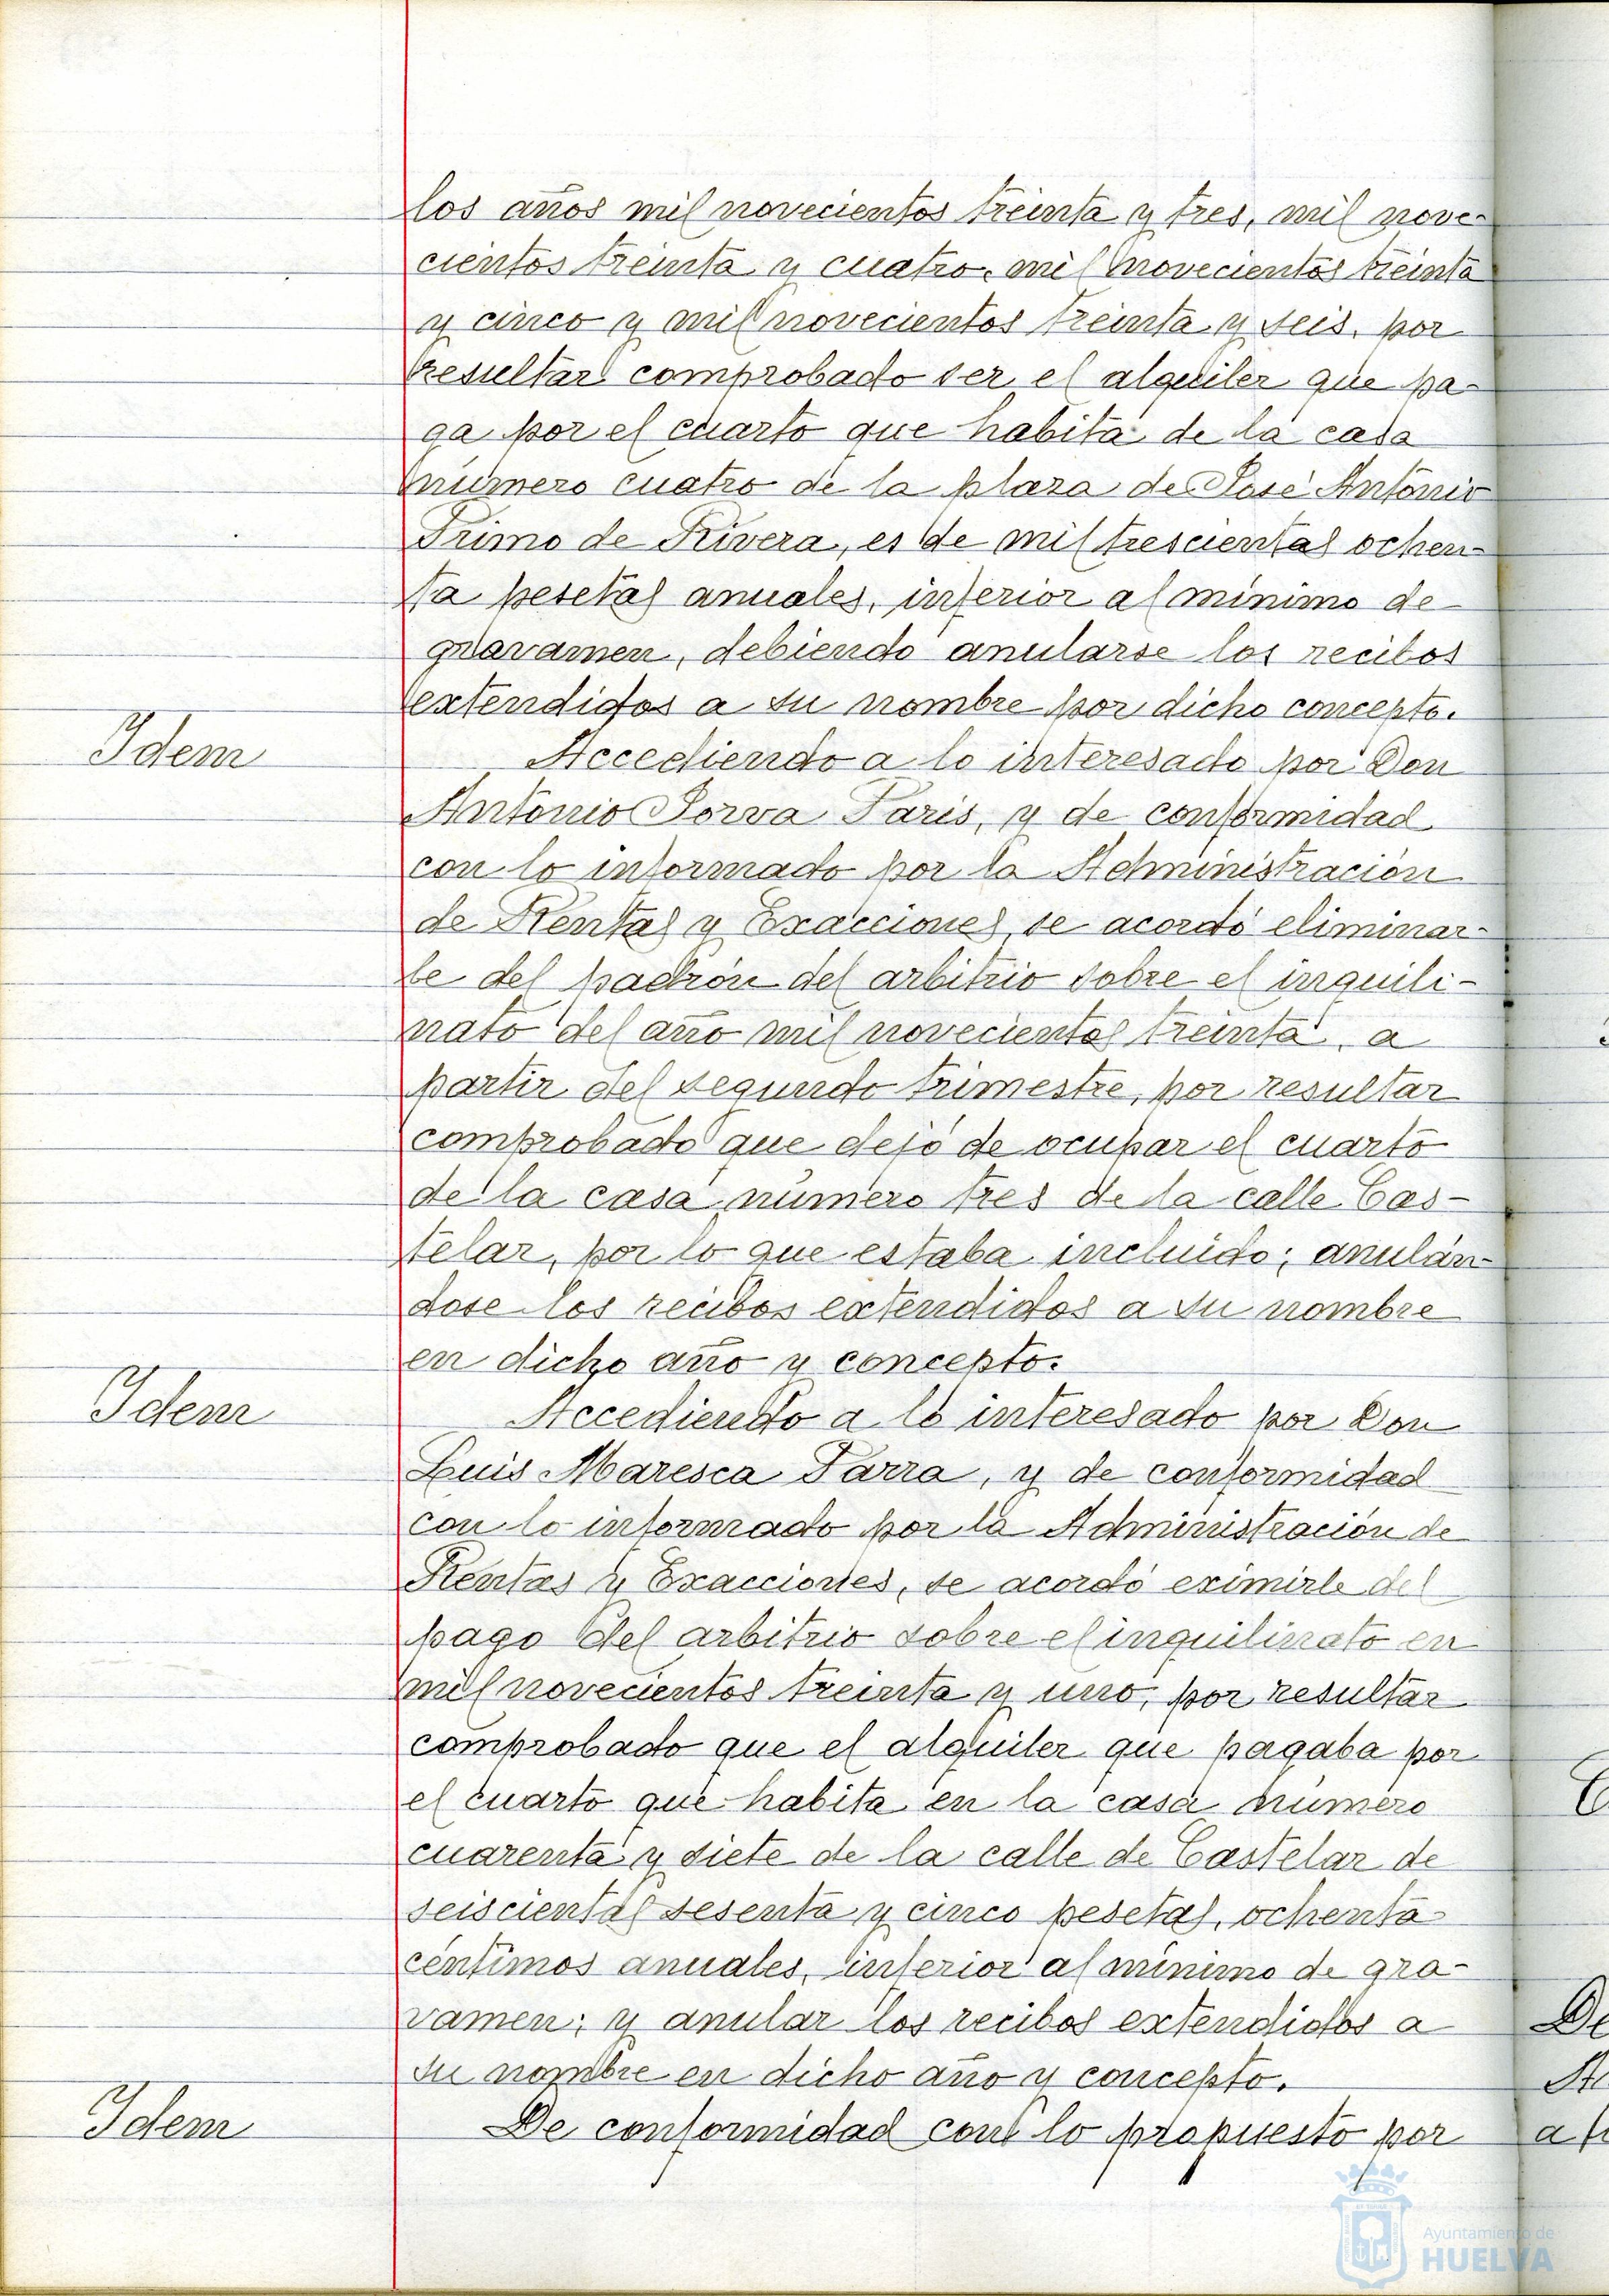 los años mil novecientos treinta y tres, mil nove-
cientos treinta y cuatro, mil novecientos treinta
y cinco y mil novecientos treinta y seis, por
resultar comprobado ser el alquiler que pa-
ga por el cuarto que habita de la casa
número cuatro de la plaza de José Antonio
Primo de Rivera, es de mil trescientas ochen-
ta pesetas anuales, inferior al mínimo de
gravamen, debiendo anularse los recibos
extendidos a su nombre por dicho concepto.
Idem
Accediendo a lo interesado por Don
Antonio Jorva Paris, y de conformidad
con lo informado por la Administración
de Rentas y Exacciones, se acordó eliminar-
le del padrón del arbitrio sobre el inquili-
nato del año mil novecientos treinta, a
partir del segundo trimestre, por resultar
comprobado que dejó de ocupar el cuarto
de la casa número tres de la calle Cas-
telar, por lo que estaba incluido; anulán-
dose los recibos extendidos a su nombre
en dicho año y concepto.
Idem
Accediendo a lo interesado por Don
Luis Maresca Parra, y de conformidad
con lo informado por la Administración de
Rentas y Exacciones, se acordó eximirle del
pago del arbitrio sobre el inquilinato en
mil novecientos treinta y uno, por resultar
comprobado que el alquiler que pagaba por
el cuarto que habita en la casa número
cuarenta y siete de la calle de Castelar de
seiscientas sesenta y cinco pesetas, ochenta
céntimos anuales, inferior al mínimo de gra-
vamen; y anular los recibos extendidos a
su nombre en dicho año y concepto.
Idem
De conformidad con lo propuesto por
Ayuntamiento de
HUELVA